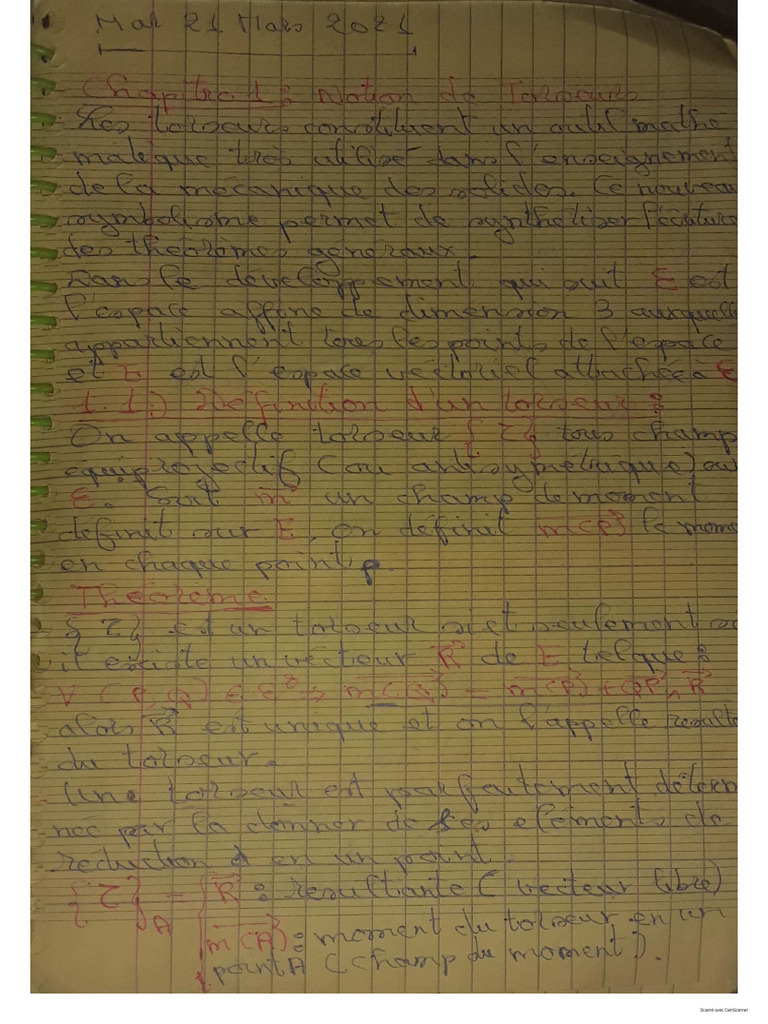 Mar 21 Mars 2021
Chapitre 1 : Notion de Torseurs
Les torseurs constituent un outil mathé
matique très utilisé dans l'enseignement
de la mécanique des solides. Ce nouveau
symbolisme permet de synthetiser l'écriture
des théorèmes généraux.
Dans le développement qui suit Ɛ est
l'espace affine de dimension 3 auxquelle
appartiennent tous les points de l'espace
et E est l'espace vectoriel attachée à Ɛ
1.1:) Définition d'un torseur :
On appelle torseur {τ} tous champ
équiprojectif (ou antisymétrique) ou
Ɛ. Soit m⃗ un champ de moment
définit sur E, on définit m(P)⃗ le mome
en chaque point p.
Théoreme
{τ} est un torseur si et seulement
il existe un vecteur R⃗ de E telque :
∀ (P,Q) ∈ Ɛ² ⇒ m(Q)⃗ = m(P)⃗ + QP⃗ ∧ R⃗
alors R⃗ est unique et on l'appelle resulta
du torseur.
Une torseur est parfaitement déterm
née par la donner de ses eléments de
reduction en un point.
{τ}A = { R⃗ : resultante (vecteur libre)
m(A)⃗ : moment du torseur en un
point A (champ du moment).
Scanné avec CamScanner